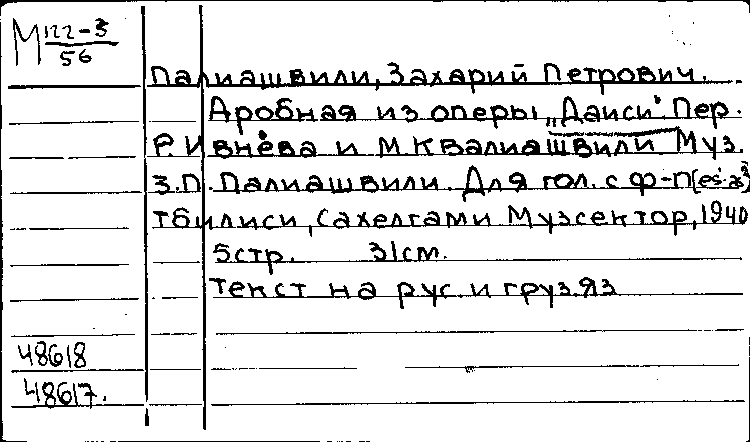 М 122-3
56
Палиашвили, Захарий Петрович.
Аробная из оперы „Даиси". Пер.
Р. Ивнева и М. Квалиашвили Муз.
З.П. Палиашвили. Для гол. с ф-п
Тбилиси, Сахелгами Музсектор, 1940
5 стр. 31 см.
Текст на рус. и груз. яз
48618
48617.